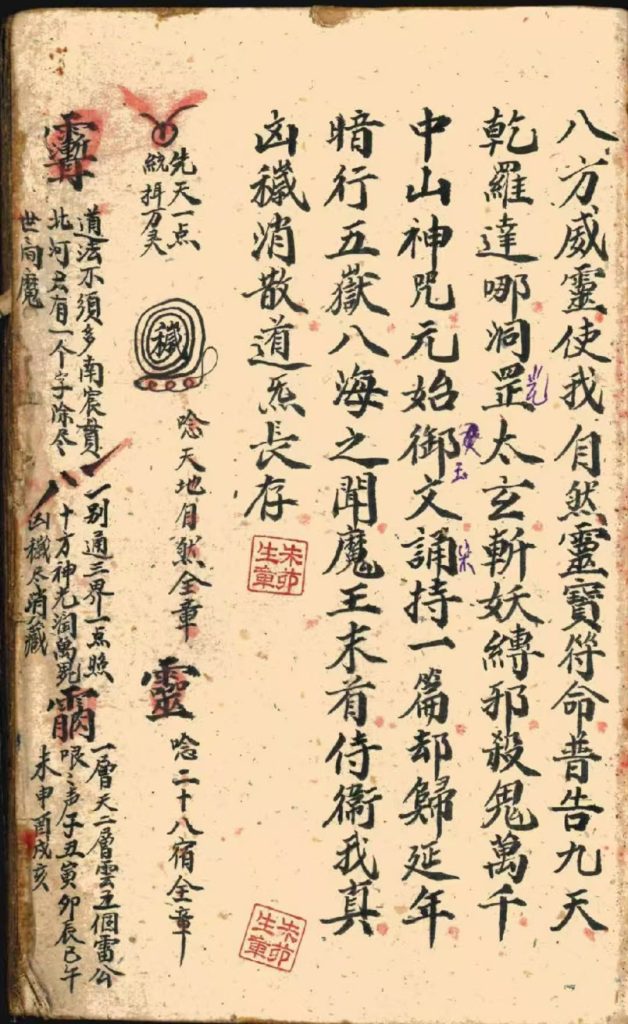 八方威靈使我自然靈寶符命普告九天
乾羅達哪洞罡太玄斬妖縛邪殺鬼萬千
中山神咒元始御文誦持一篇却歸延年
暗行五嶽八海之聞魔王末首侍衛我真
凶穢消散道炁長存
先天一点
統
万灵
穢
唸天地自然全章
靈
唸二十八宿全章
道法不須多南宸貫
北河只有一个字涂尽
世间魔
一别通三界一点照
十方神光润萬
凶穢尽消藏
一層天二層雲五個雷公
声子丑寅卯辰巳午
未申酉戌亥